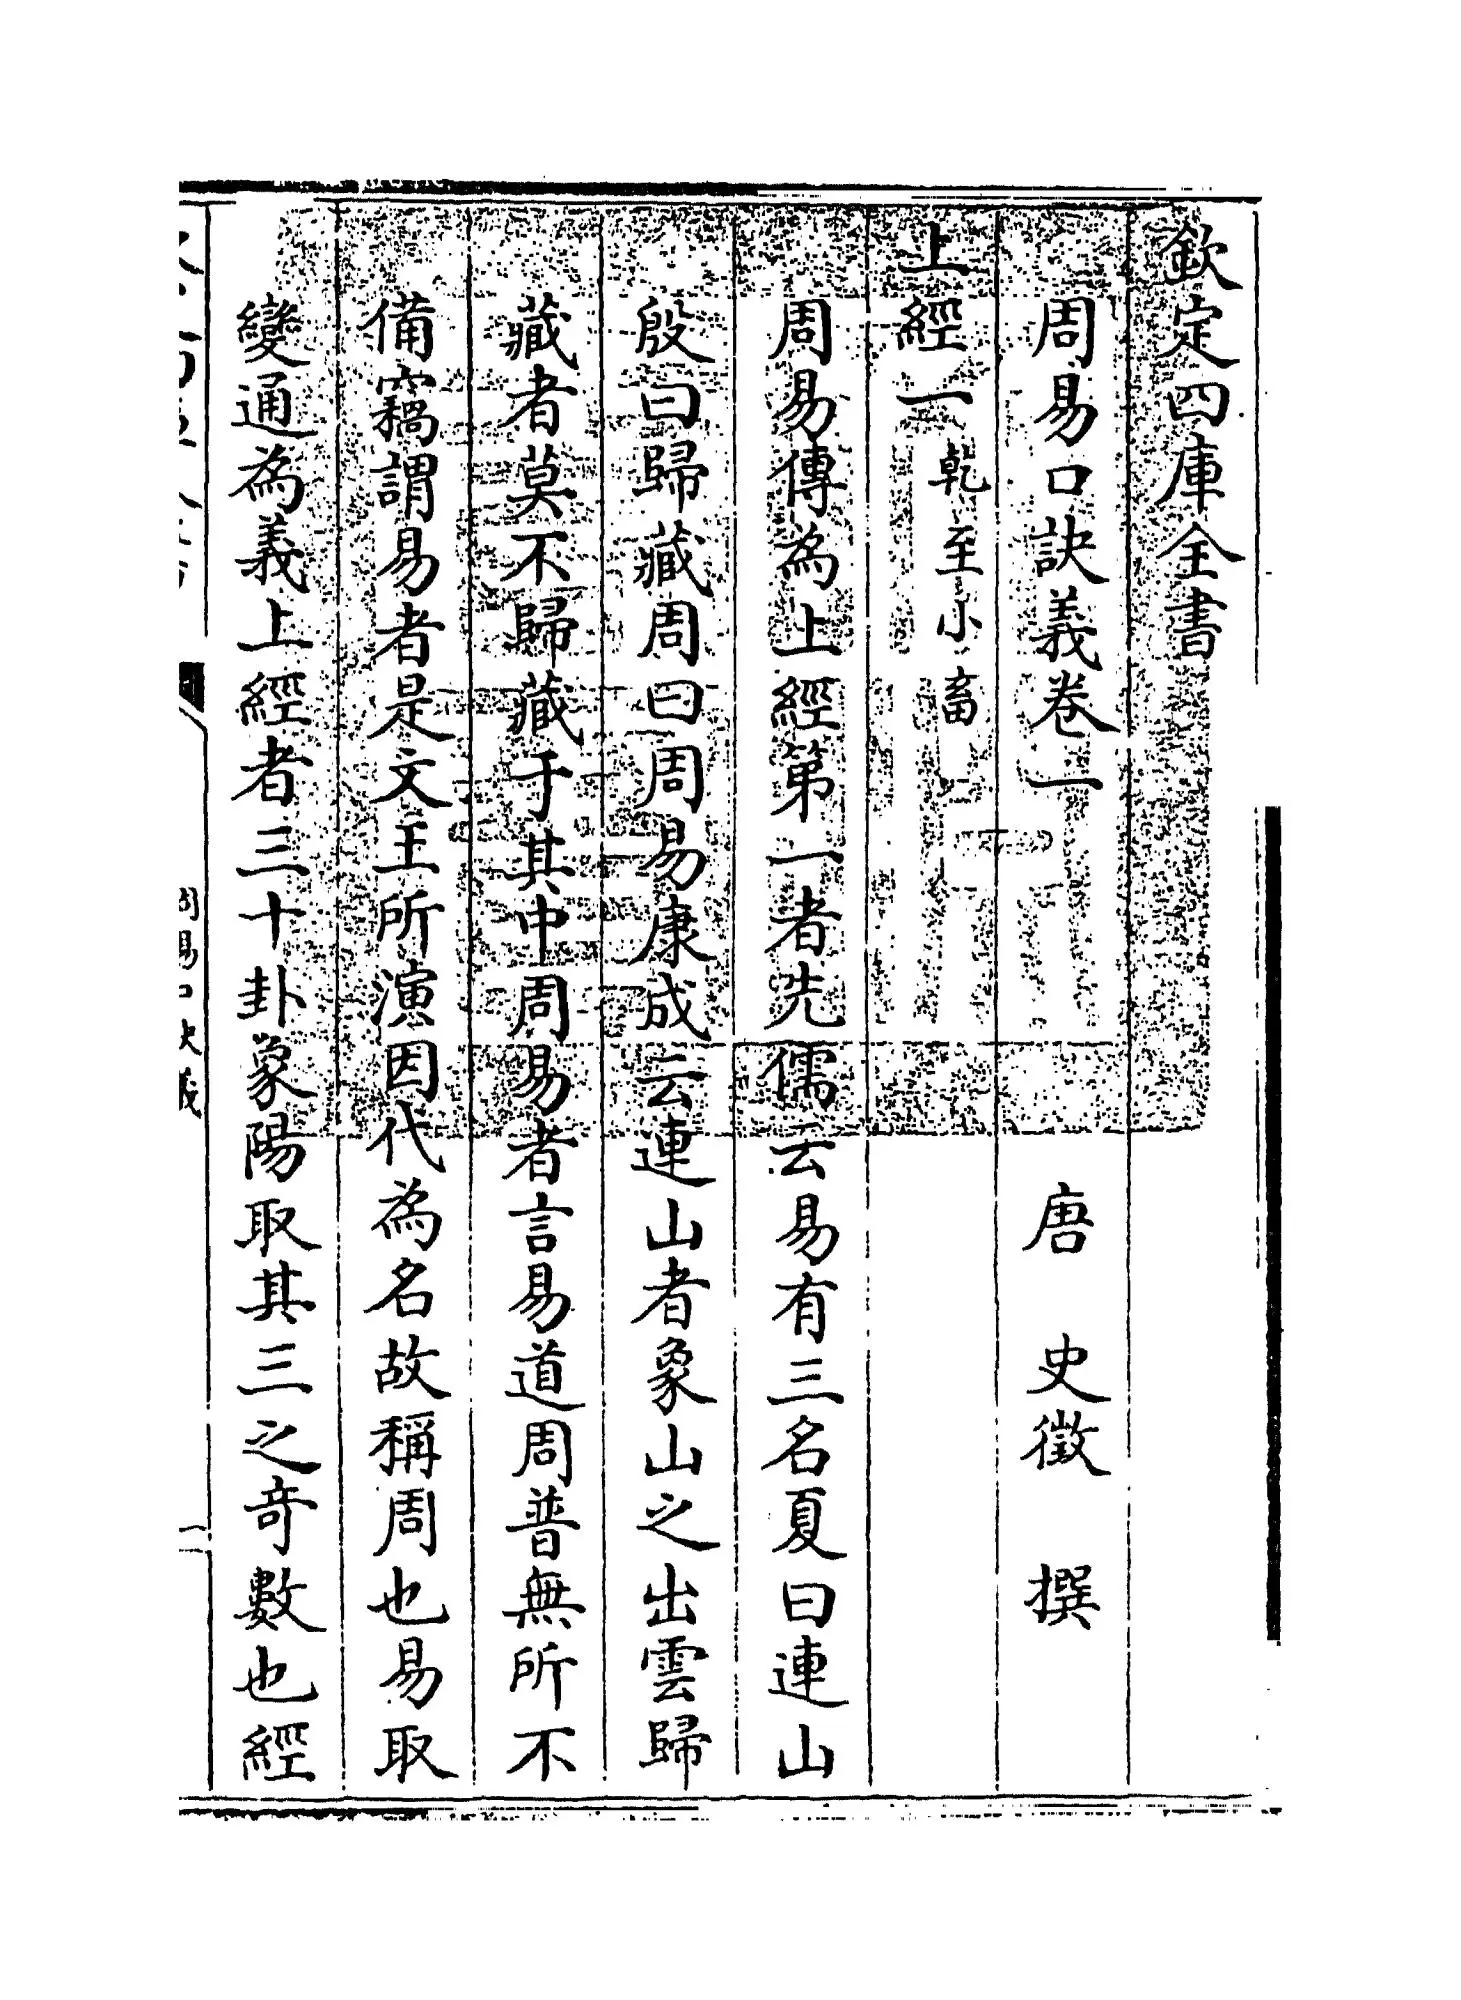 欽定四庫全書
周易口訣義卷一
唐 史徵 撰
上經一乾至小畜
周易傳為上經第一者先儒云易有三名夏曰連山
殷曰歸藏周曰周易康成云連山者象山之出雲歸
藏者莫不歸藏于其中周易者言易道周普無所不
備竊謂易者是文王所演因代為名故稱周也易取
變通為義上經者三十卦象陽取其三之奇數也經
周易口訣義